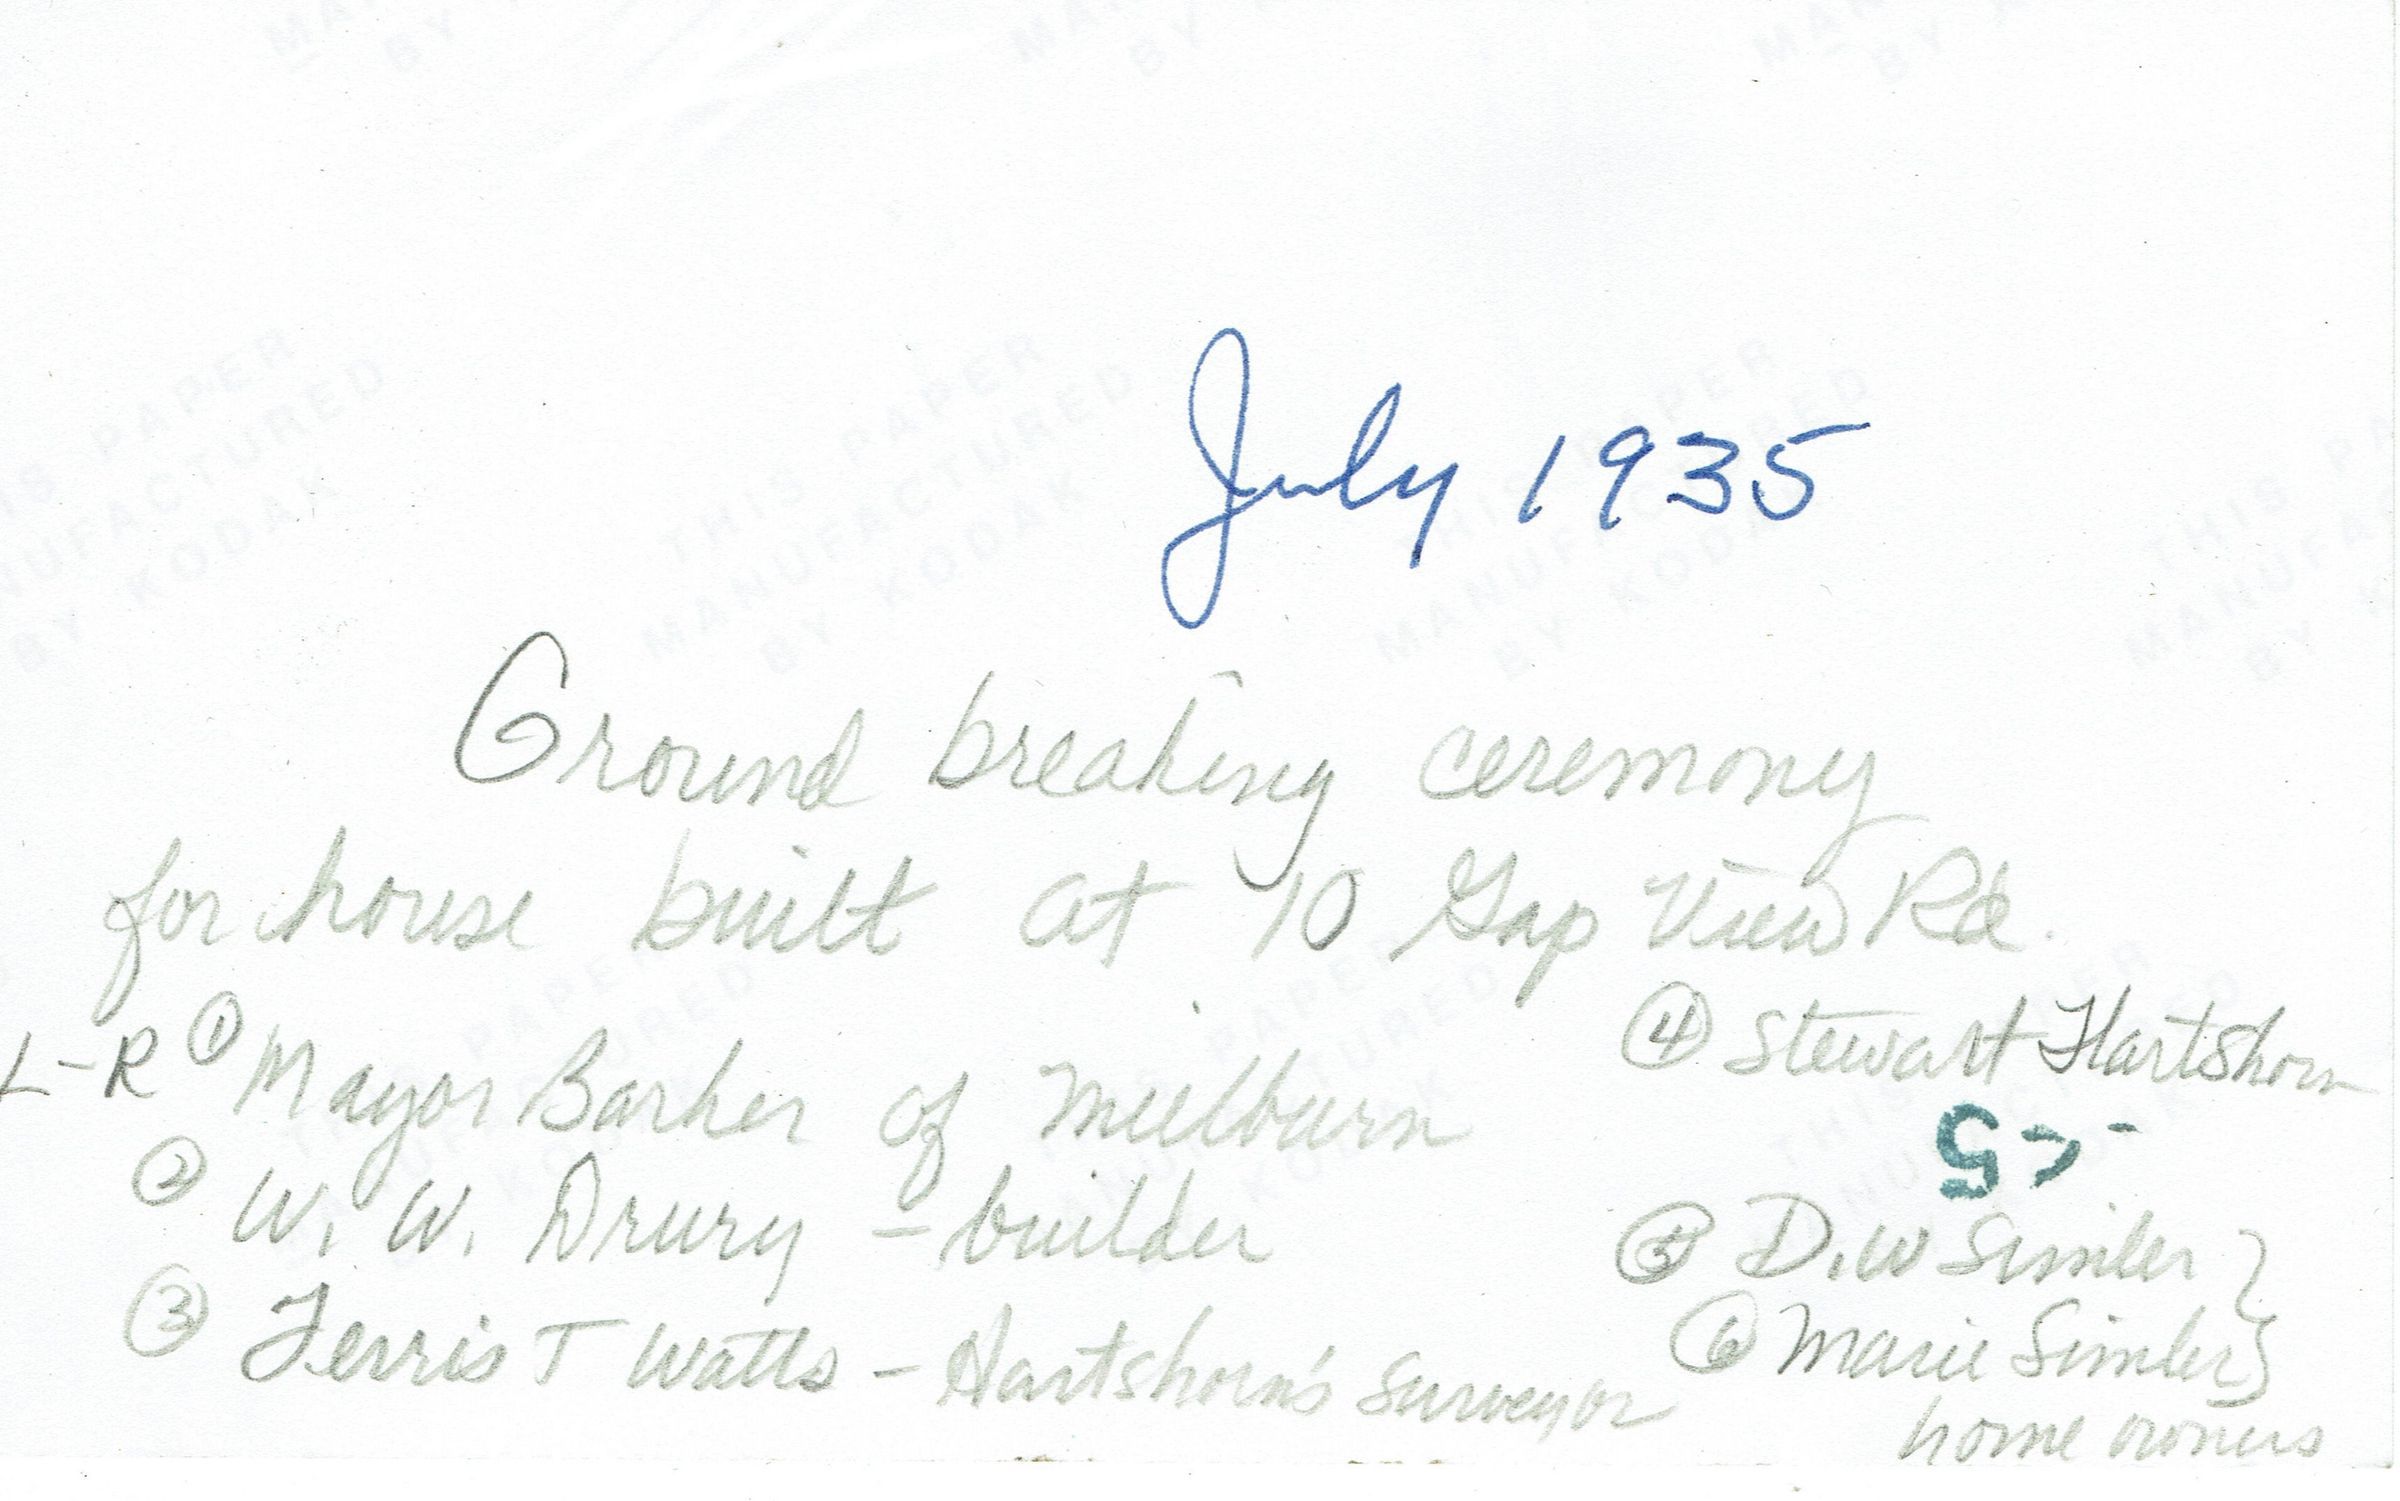 July 1935
Ground breaking ceremony
for house built at 10 Gap View Rd.
L-R ① Mayor Barker of Millburn
② W. W. Drury - builder
③ Ferris T Watts - Hartshorn's surveyor
④ Stewart Hartshorn
⑤ D.W Simler }
⑥ Marie Simler }
home owners
THIS PAPER
MANUFACTURED
BY KODAK